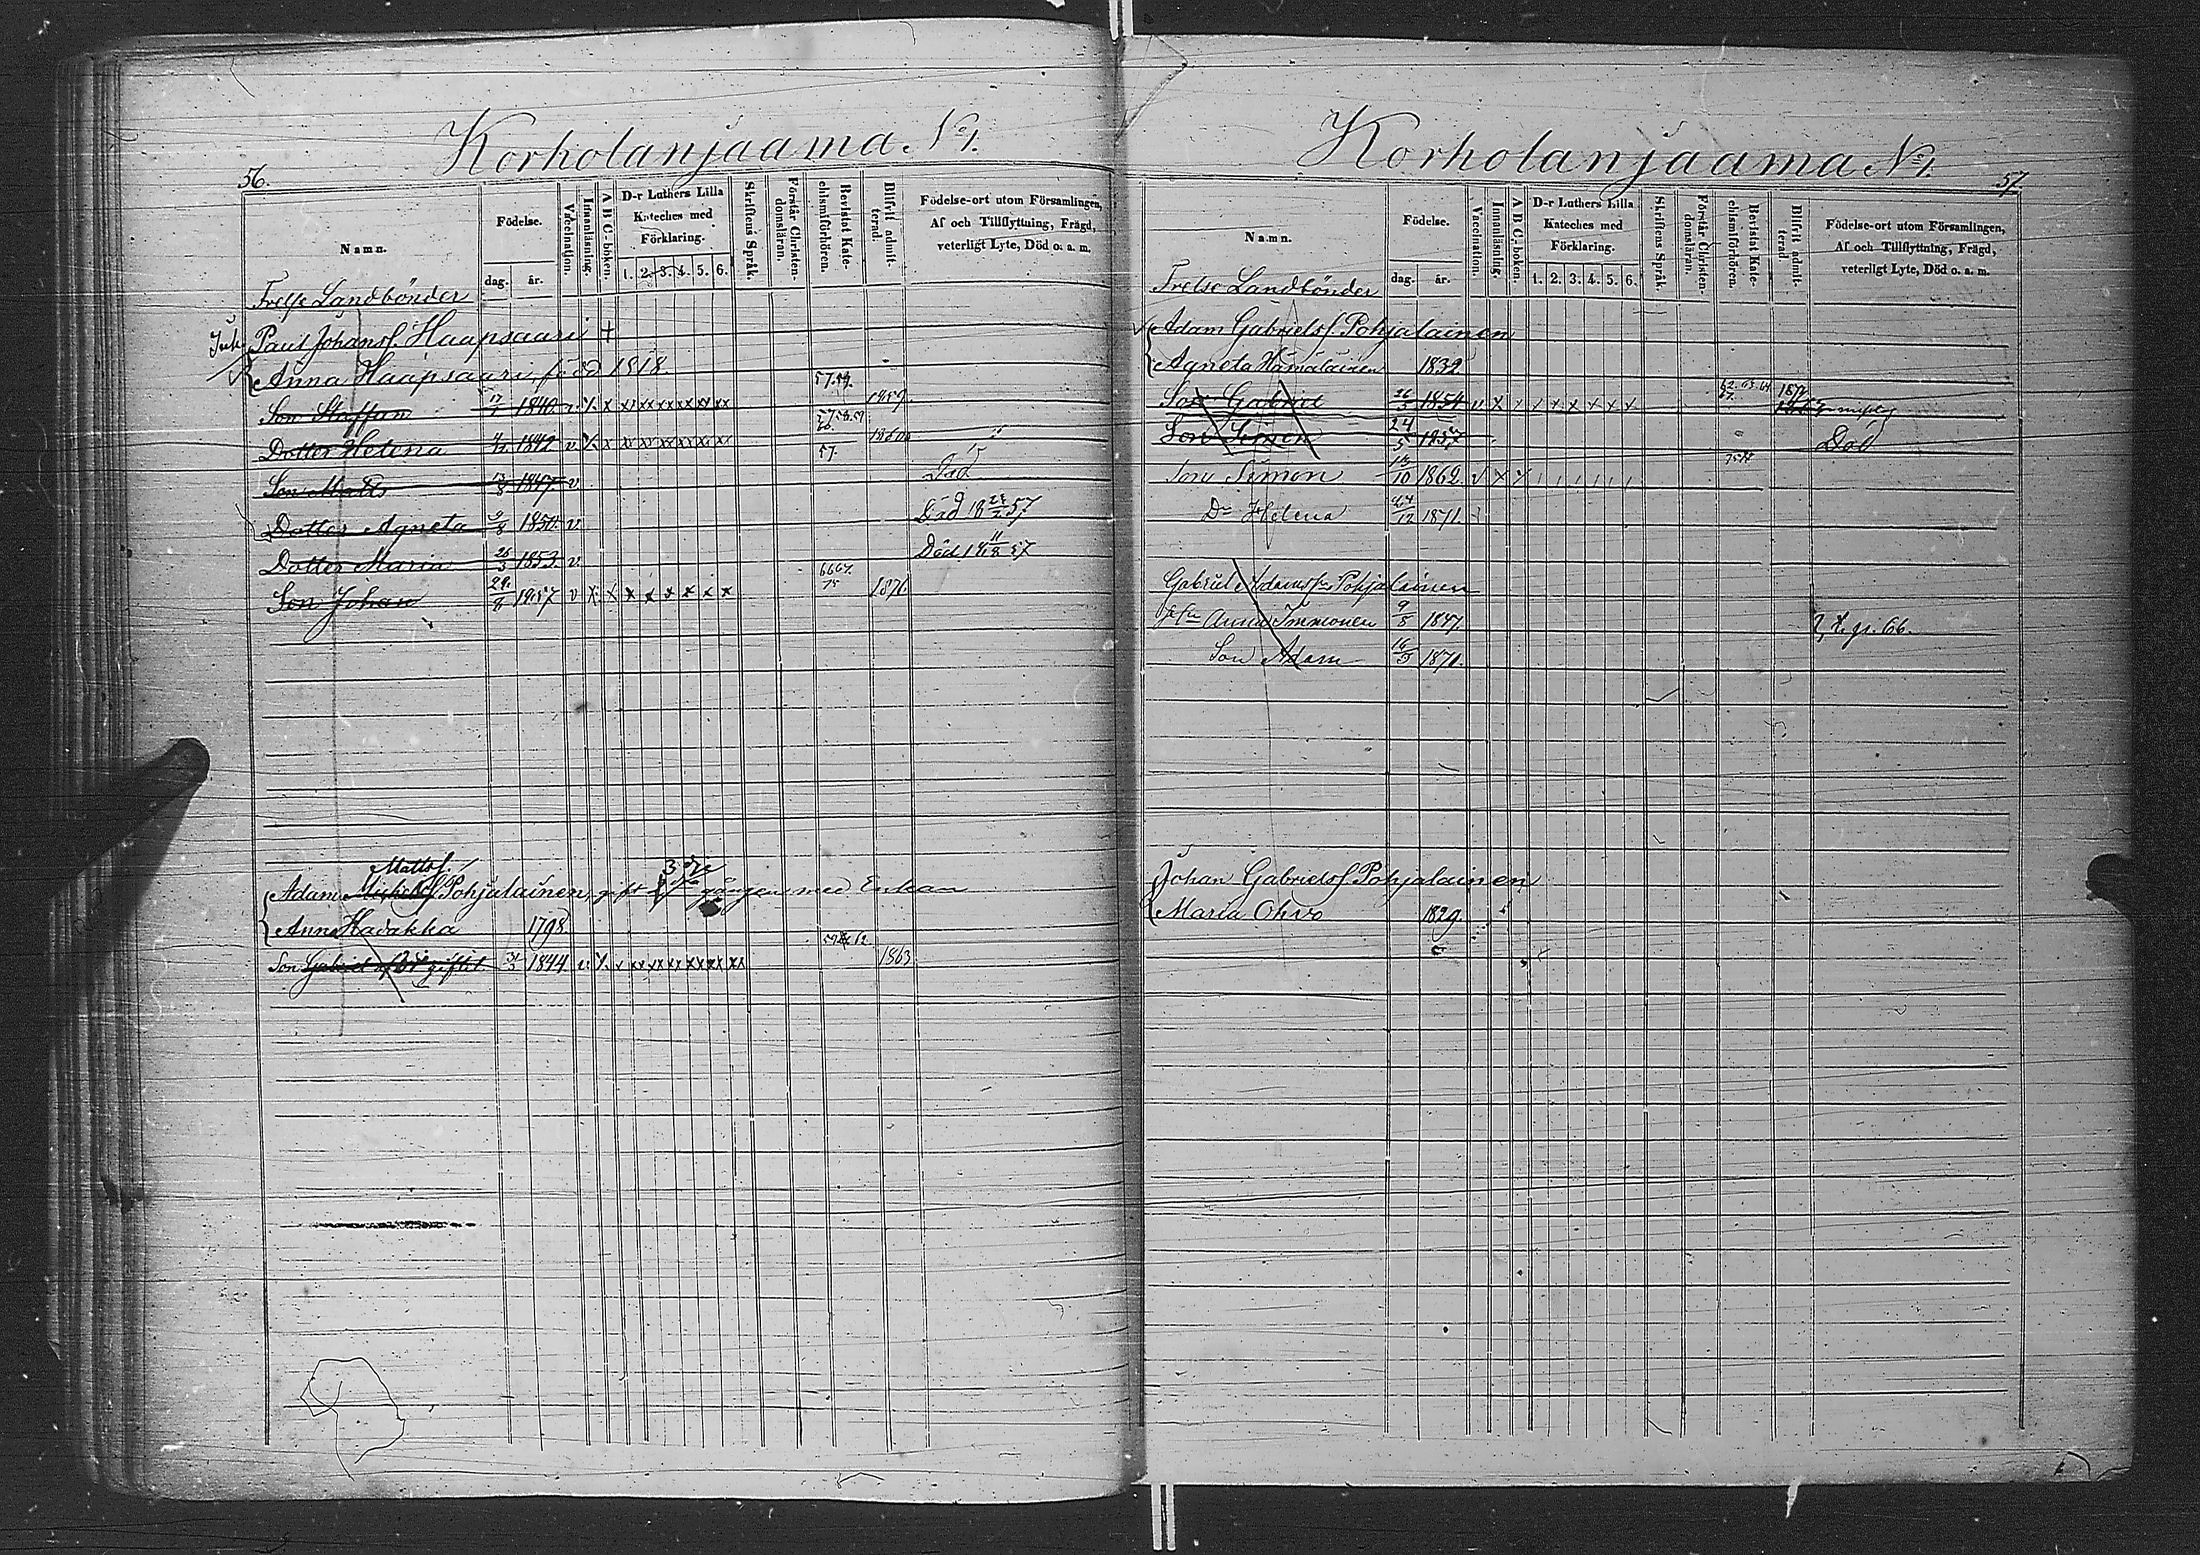 Korholanjaama No 1.
56.
Namn.
Födelse.
dag.
år.
Vaccination.
Innanläsning.
A B C-boken.
D-r Luthers Lilla
Kateches med
Förklaring.
1. 2. 3. 4. 5. 6.
Skriftens Språk.
Förstår Christen-
domsläran.
Bevistat Kate-
chismiförhören.
Blifvit admit-
terad.
Födelse-ort utom Församlingen,
Af och Tillflyttning, Frägd,
veterligt Lyte, Död o. a. m.
Frelse Landbönder
Paul Johansf. Haapsaari †
Anna Haapsaari, född 1818.
Son Staffan 17/1 1840. v x x xx xx xx xx xx xx 57.59. 1859.
Dotter Helena 1842 v x x 57.58.59 1860
Son Matts 1847. v 57. Död
Dotter Agneta 9/8 1850. v Död 18 57
Dotter Maria 26/3 1853. v Död 18 11/8 57
Son Johan 29/8 1857 v x x x x x x x x 66 67. 75 1876.
Mattsf. 3dje
Adam Michelsf. Pohjalainen, gift gången med Enkan
Anna Hadakka 1798.
Son Gabriel af 2dra giftet 31/3 1844. v x 1863
Korholanjaama No 1.
57.
Namn.
Födelse.
dag.
år.
Vaccination.
Innanläsning.
A B C-boken.
D-r Luthers Lilla
Kateches med
Förklaring.
1. 2. 3. 4. 5. 6.
Skriftens Språk.
Förstår Christen-
domsläran.
Bevistat Kate-
chismiförhören.
Blifvit admit-
terad.
Födelse-ort utom Församlingen,
Af och Tillflyttning, Frägd,
veterligt Lyte, Död o. a. m.
Frelse Landbönder
Adam Gabrielsf. Pohjalainen
Agneta Hämäläinen 1832
Son Gabriel 26/3 1854 v x x x x x x x x 62. 63. 64 67.
Son Simon 24/5 1857 Död
Son Simon 1862. v x x
Dr Helena 24/12 1871.
Gabriel Adamsf. Pohjalainen
Anna Immonen 9/5 1847.
Son Adam 16/5 1871.
Johan Gabrielsf. Pohjalainen
Maria Ohvo 1829.